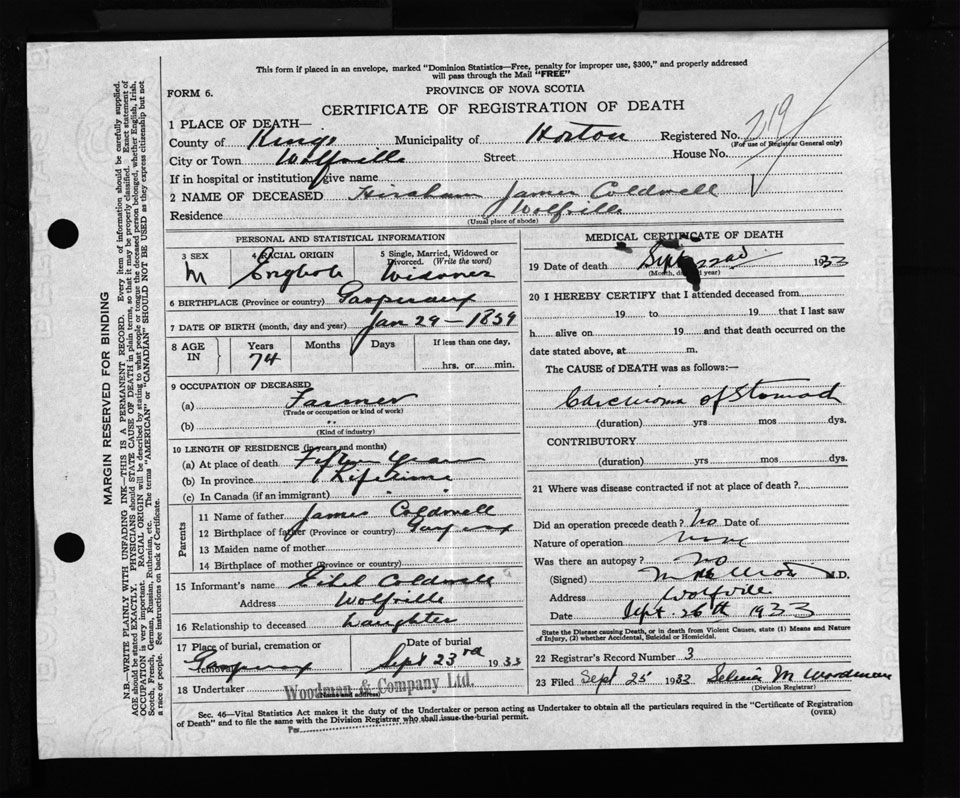 This form if placed in an envelope, marked "Dominion Statistics—Free, penalty for improper use, $300," and properly addressed
will pass through the Mail "FREE"
FORM 6.
PROVINCE OF NOVA SCOTIA
CERTIFICATE OF REGISTRATION OF DEATH
1 PLACE OF DEATH—
County of Kings Municipality of Horton Registered No. 219
(For use of Registrar General only)
City or Town Wolfville Street House No.
If in hospital or institution, give name
2 NAME OF DECEASED James Coldwell
Residence Wolfville
(Usual place of abode)
PERSONAL AND STATISTICAL INFORMATION
3 SEX 4 RACIAL ORIGIN 5 Single, Married, Widowed or
Divorced. (Write the word)
M English Widower
6 BIRTHPLACE (Province or country) Gaspereaux
7 DATE OF BIRTH (month, day and year) Jan 29 - 1859
8 AGE IN Years Months Days If less than one day,
74 hrs. or min.
9 OCCUPATION OF DECEASED
(a) Farmer
(Trade or occupation or kind of work)
(b) "
(Kind of industry)
10 LENGTH OF RESIDENCE (in years and months)
(a) At place of death Years
(b) In province Lifetime
(c) In Canada (if an immigrant) "
Parents
11 Name of father James Coldwell
12 Birthplace of father (Province or country)
13 Maiden name of mother
14 Birthplace of mother (Province or country)
15 Informant's name Ethel Coldwell
Address Wolfville
16 Relationship to deceased Daughter
17 Place of burial, cremation or removal Date of burial
Sept 23rd 1933
18 Undertaker Woodman & Company Ltd.
MEDICAL CERTIFICATE OF DEATH
19 Date of death Sept 22nd 1933
(Month, day and year)
20 I HEREBY CERTIFY that I attended deceased from
19 to 19 that I last saw
h alive on 19 and that death occurred on
date stated above, at m.
The CAUSE of DEATH was as follows:—
Carcinoma of Stomach
(duration) yrs mos dys.
CONTRIBUTORY
(duration) yrs mos dys.
21 Where was disease contracted if not at place of death?
Did an operation precede death? No Date of
Nature of operation none
Was there an autopsy? no
(Signed) M.D.
Address Wolfville
Date Sept. 26th 1933
State the Disease causing Death, or in death from Violent Causes, state (1) Means and Nature
of Injury, (2) whether Accidental, Suicidal or Homicidal.
22 Registrar's Record Number 3
23 Filed Sept 25 1933 M Woodman
(Division Registrar)
Sec. 46—Vital Statistics Act makes it the duty of the Undertaker or person acting as Undertaker to obtain all the particulars required in the "Certificate of Registration
of Death" and to file the same with the Division Registrar who shall issue the burial permit. (OVER)
Per
MARGIN RESERVED FOR BINDING
N.B.—WRITE PLAINLY WITH UNFADING INK—THIS IS A PERMANENT RECORD. Every item of information should be carefully supplied.
AGE should be stated EXACTLY. PHYSICIANS should STATE CAUSE OF DEATH in plain terms, so that it may be properly classified. Exact statement of
OCCUPATION is very important. RACIAL ORIGIN will be described by stating to what people or tongue the deceased person belonged, whether English, Irish,
Scotch, French, German, Russian, Ruthenian, etc. The terms "AMERICAN" or "CANADIAN" SHOULD NOT BE USED as they express citizenship but not
a race or people. See instructions on back of Certificate.